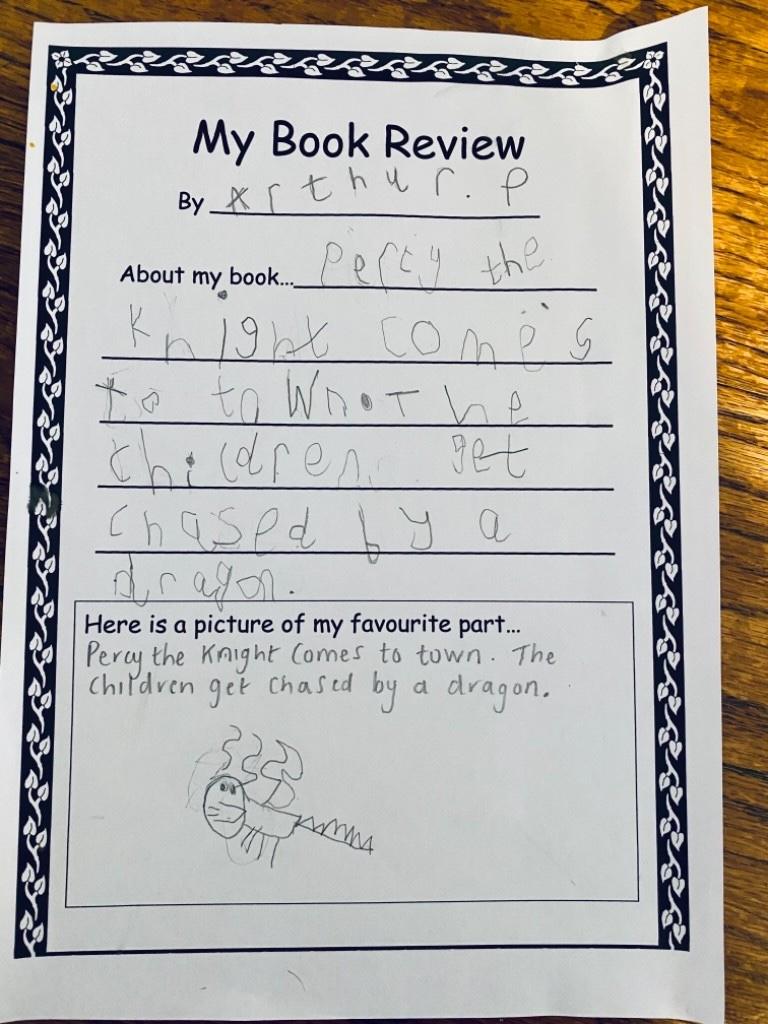 My Book Review
By Arthur. P
About my book... Percy the
Knight comes
to town. The
children get
chased by a
dragon.
Here is a picture of my favourite part...
Percy the Knight Comes to town. The
Children get Chased by a dragon.